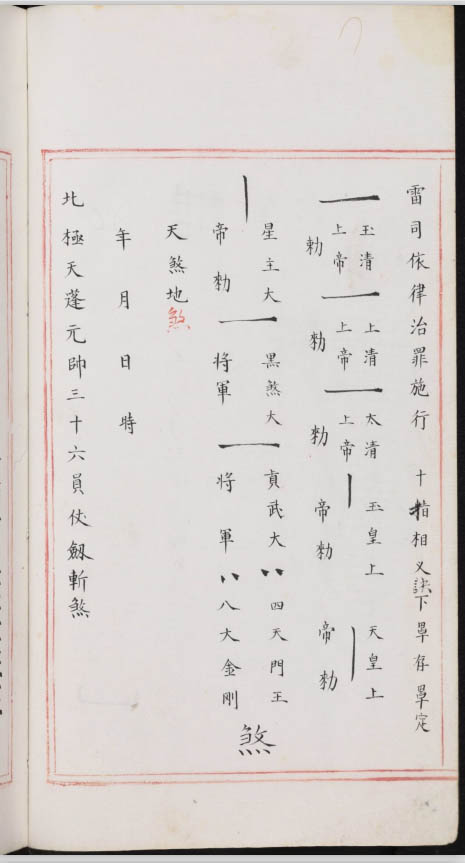 雷司依律治罪施行 十指相义訣下罩存罩定
玉清上帝勅 上清上帝勑 太清上帝勑 玉皇上帝勑 天皇上帝勑
星主大帝勑 黒煞大將軍 貞武大將軍 四天門王八大金剛 煞
天煞地煞
年月日時
北極天蓬元帥三十六員仗劔斬煞